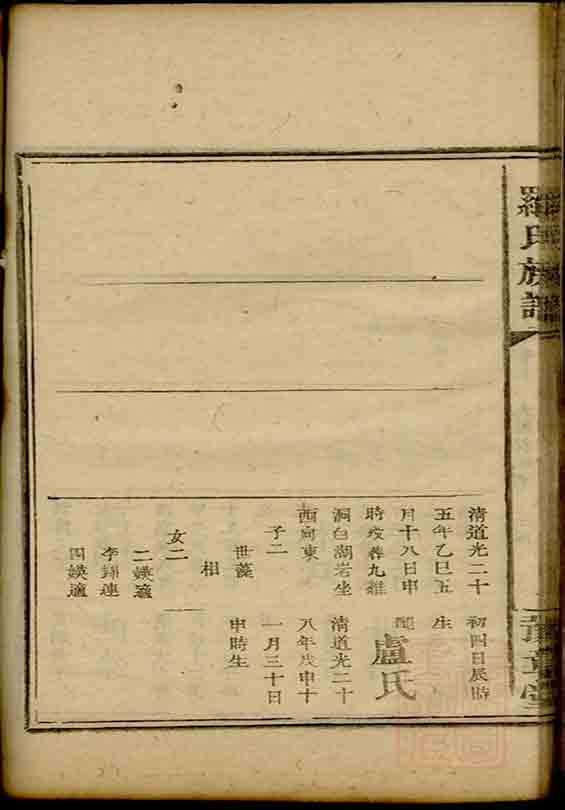 羅氏族譜
豫章堂
清道光二十
五年乙巳五
月十八日申
時歿葬九推
洞白湖岩坐
酉向東
子二
世藻
相
女二
二媖適
李錦連
四媖適
初四日辰時
生
配盧氏
清道光二十
八年戊申十
一月三十日
申時生